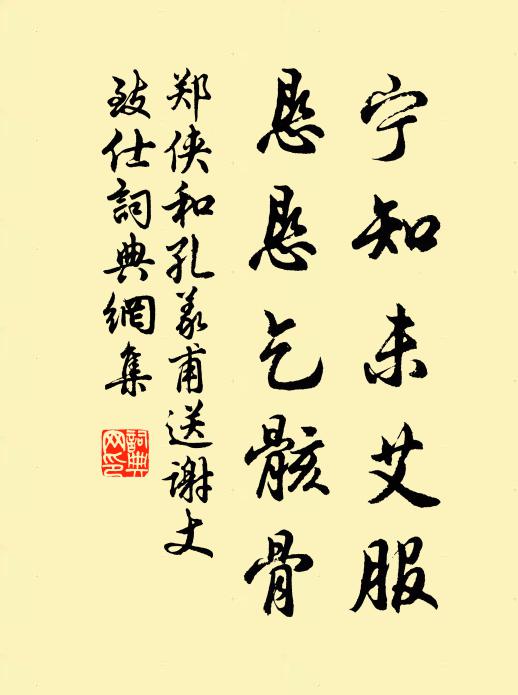 宁知未艾服
恳恳乞骸骨
郑侠和孔義甫送谢丈
致仕詞典網集
詞典网印